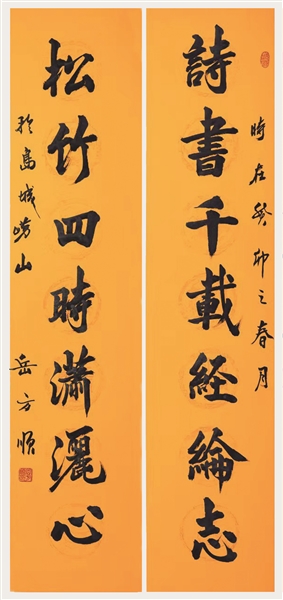 詩書千載経綸志
時在癸卯之春月
松竹四時瀟灑心
於島城嶗山
岳方順